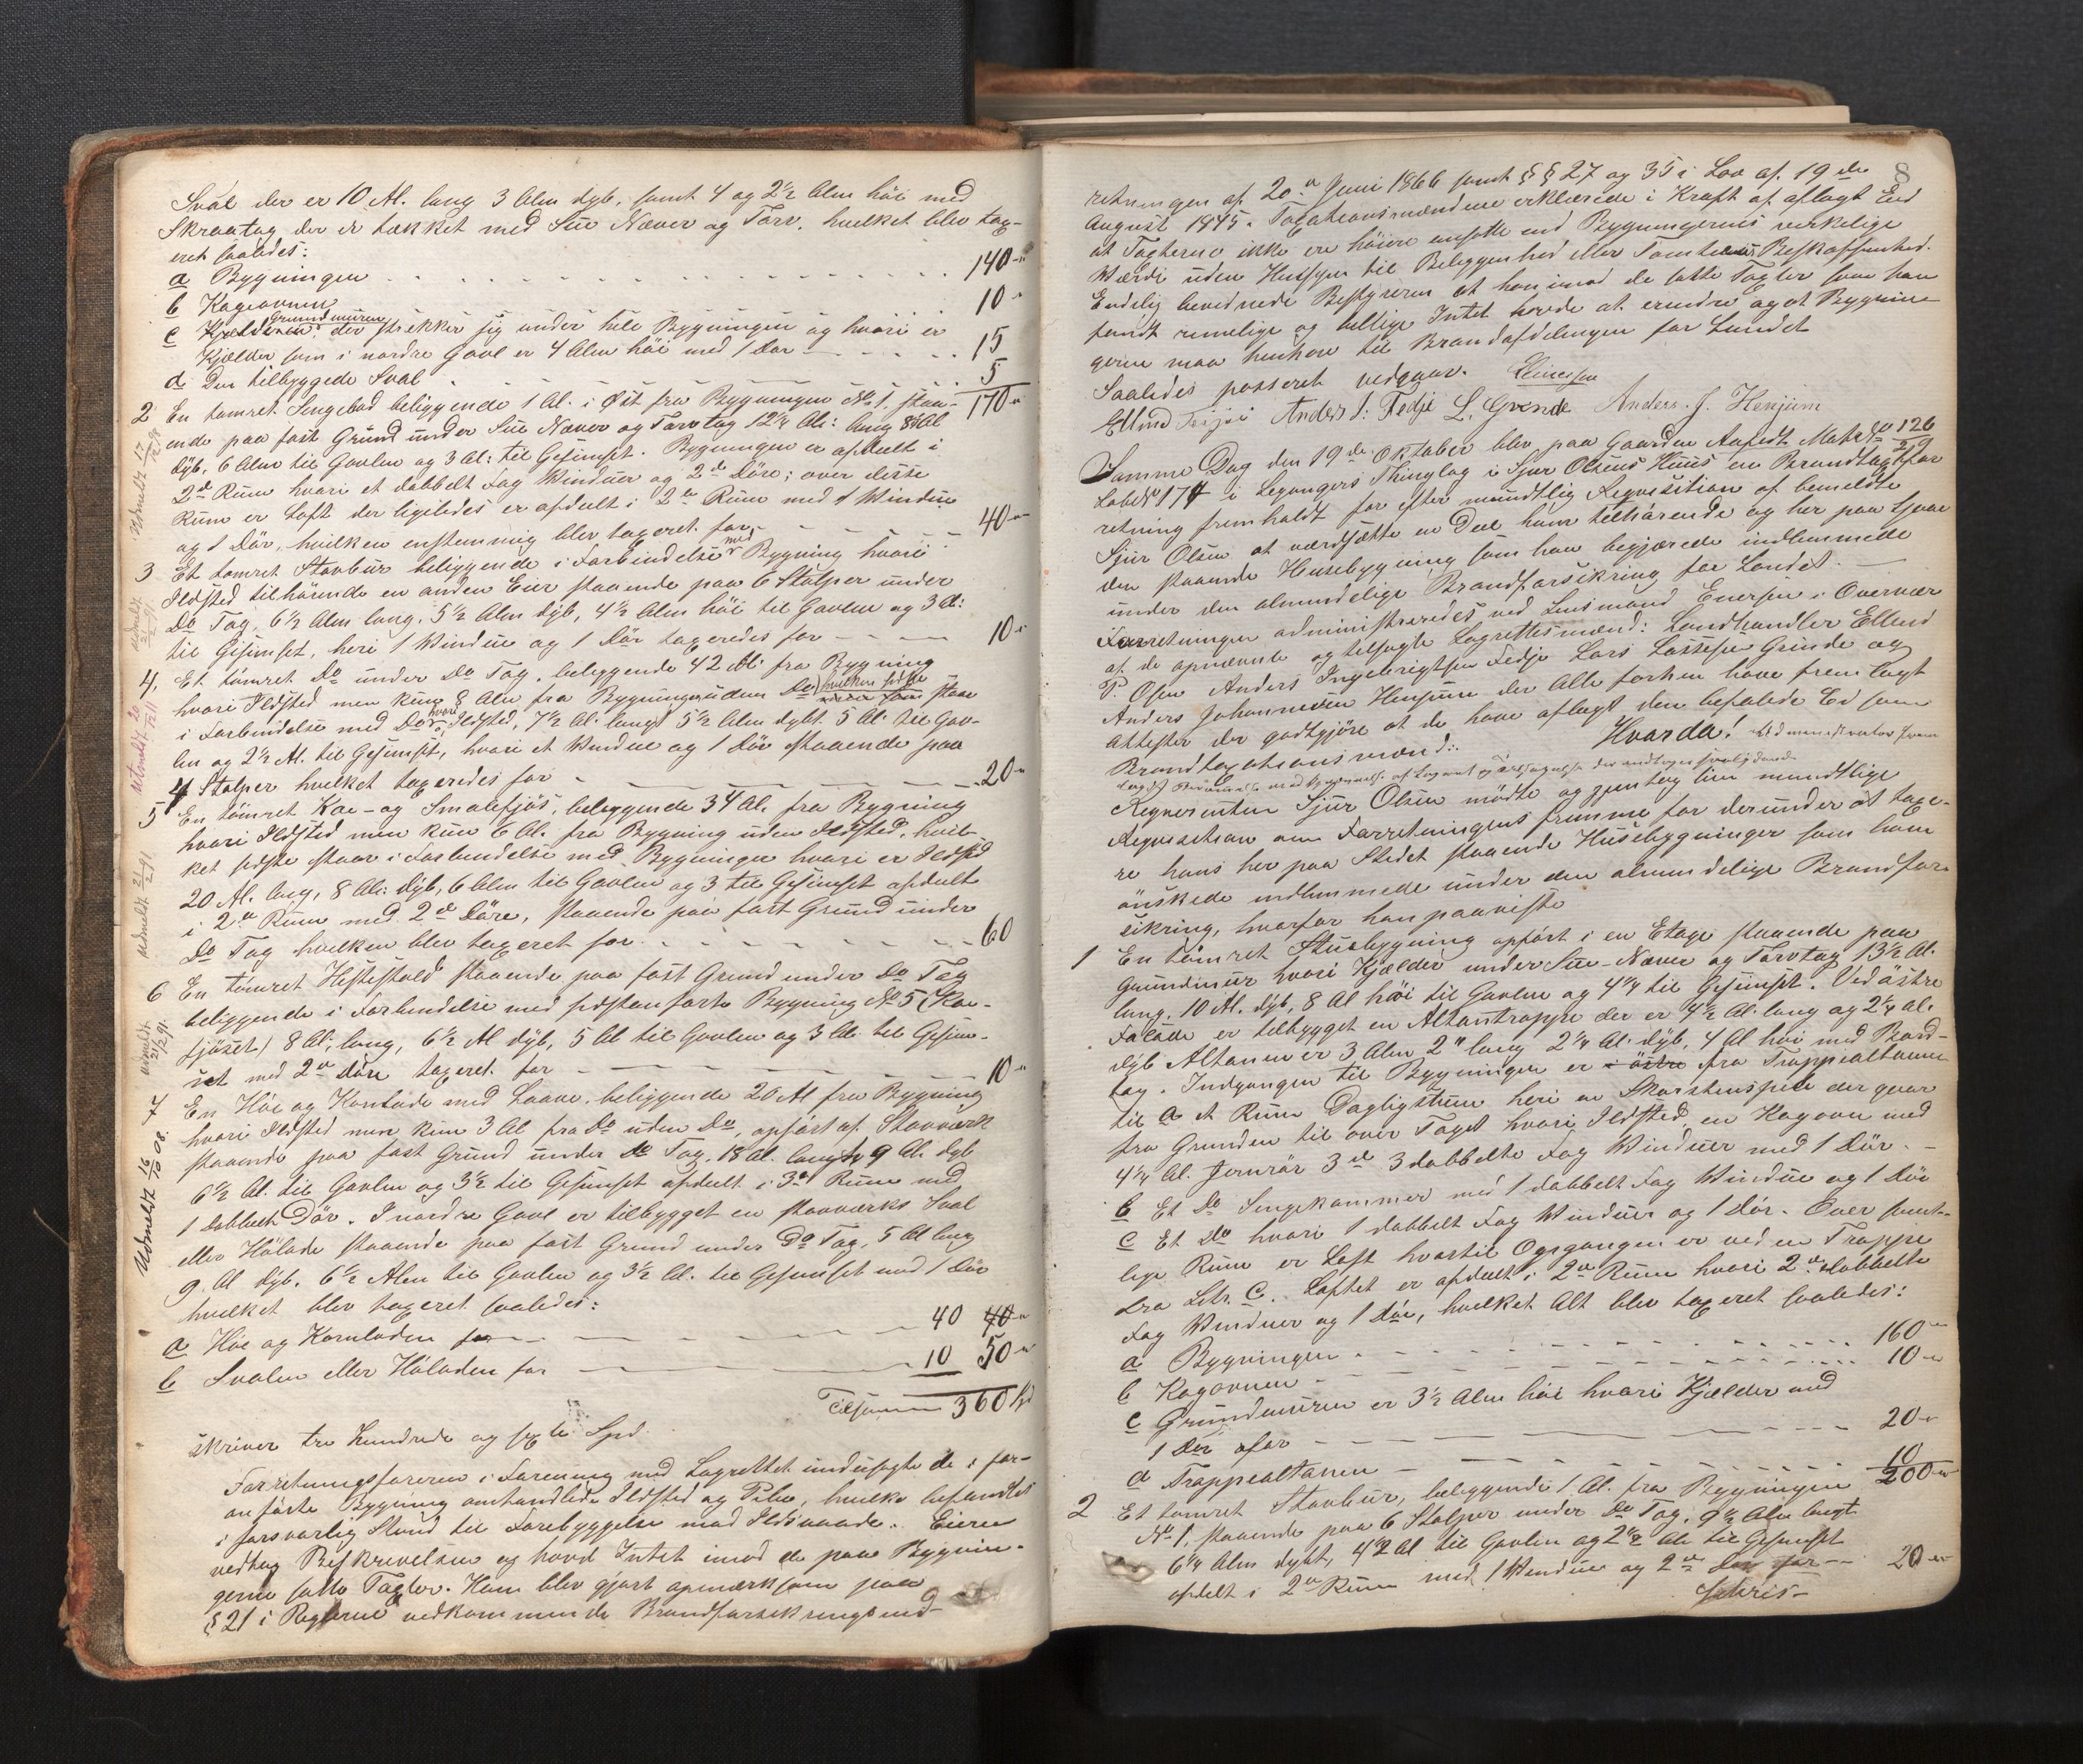 Sval der er 10 Al. lang 3 Alen dyb, samt 4 og 2½ Alen höi med
Skraatag der er tækket med Sue Næver og Torv, hvilket blev tax-
eret saaledes:
a Bygningen 140 "
b Kageovnen 10 "
c Kjelderen grundmuren der strekker sig under hele Bygningen og hvori er
Kjælder som i nordre Gavl er 4 Alen höi med 1 Dør 15
d Den tilbyggede Sval 5
170 "
2 En tømret Sengebod beliggende 1 Al. i Øst fra Bygningen No 1, staa-
ende paa fast Grund under Sue Næver og Torvtag 12¼ Al: lang 8 Al
dyb, 6 Alen til Gavlen og 3 Al: til Gesimset. Bygningen er afdeelt i
2de Rum hvori et dobbelt Fag Vinduer og 2de Döre; over disse
Rum er Loft der ligeledes er afdeelt i 2de Rum med 1 Vindue
og 1 Dör, hvilken enstemmig blev taxeret for 40 "
3 Et tømret Stavbur beliggende i Forbindelse med Bygning hvori
Ildsted tilhörende en anden Eier staaende paa 6 Stolper under
Do Tag, 6½ Alen lang, 5½ Alen dyb, 4½ Alen höi til Gavlen og 3 Al:
til Gesimset, heri 1 Vindue og 1 Dör taxeredes for 10 "
4, Et tömret Do under Do Tag, beliggende 42 Al: fra Bygning
hvori Ildsted men kun 8 Alen fra Bygningen uden Do hvilken sidste staar
i Forbindelse med Do hvori Ildsted, 7½ Al. langt 5½ Alen dybt. 5 Al: til Gav-
len og 2½ Al. til Gesimset, hvori et Vindue og 1 Dör staaende paa
4 Stolper hvilket taxeredes for 20 "
5 En tömret Koe- og Smalefjös, beliggende 34 Al. fra Bygning
hvori Ildsted men kun 6 Al. fra Bygning uden Ildsted, hvil-
ket sidste staar i Forbindelse med Bygningen hvori er Ildsted
20 Al. lang, 8 Al: dyb, 6 Alen til Gavlen og 3 til Gesimset afdeelt
i 2de Rum med 2de Döre, staaende paa fast Grund under
Do Tag hvilken blev taxeret for 60
6 En tömret Hestestald staaende paa fast Grund under Do Tag
beliggende i Forbindelse med sidstanförte Bygning No 5 (Koe-
fjöset) 8 Al: lang, 6½ Al dyb, 5 Al til Gavlen og 3 Al. til Gesim-
set med 2de Döre taxeret for 10 "
7 En Höe og Kornlade med Laave, beliggende 20 Al fra Bygning
hvori Ildsted men kun 3 Al fra Do uden Do, opfört af Stavværk
staaende paa fast Grund under Do Tag, 18 Al. lang 9 Al: dyb
6½ Al. til Gavlen og 3½ til Gesimset afdeelt i 3de Rum med
1 dobbelt Dör. I nordre Gavl er tilbygget en stavværks Sval
eller Hölade staaende paa fast Grund under Do Tag, 5 Al lang
9 Al dyb, 6½ Alen til Gavlen og 3½ Al. til Gesimset med 1 Dör
hvilket blev taxeret saaledes:
a Höe og Kornladen for 40 40 "
b Svalen eller Höladen for 10 50 "
Tilsammen 360 Spd
skriver tre Hundrede og sexti Spd.
Forretningsföreren i Forening med Lagrettet undersögte de i for-
anförte Bygning omhandlede Ildsted og Pibe, hvilke befandtes
i forsvarlig Stand til Forebyggelse mod Ildsvaade. Eieren
vedtog Beskrivelsen og havde Intet imod de paa Bygnin-
gerne satte Taxter. Han blev gjort opmærksom paa
§ 21 i Reglerne vedkommende Brandforsikringsind-
Udmeldt 17/12 91
udmeldt
Udmeldt 20/12 11
Udmeldt 21/2 91
udmeldt 21/2 91.
Udmeldt 16/10 08.
8
retningen af 20de Juni 1866 samt §§ 27 og 35 i Lov af 19de
August 1845. Taxationsmændene erklærede i Kraft af aflagt Eed
at Taxterne ikke ere höiere ansatte end Bygningernes verkelige
Værdi uden Hensyn til Beliggenhed eller Tomtens Beskaffenhed.
Endelig bevidnede Bestyreren at han imod de satte Taxter som han
fandt rimelige og billige Intet havde at erindre og at Bygnin-
gerne maa henhöre til Brandafdelingen for Landet
Saaledes passeret vedgaar. Einersen
Ellend Anders I: Fedje L. Grinde Anders. J. Henjum
Samme Dag den 19de Oktober blev paa Gaarden Aafedt Matr No 126
Löbe No 174 i Leganger Thinglag i Sjur Olsens Huus en Brandtaxtfor
retning fremholdt for efter mundtlig Reqvisition af bemeldte
Sjur Olsen at værdsætte en Deel ham tilhörende og her paa Gaar
den staaende Husebygning som han begjærede indlemmede
under den almindelige Brandforsikring for Landet.
Forretningen administreredes ved Lensmand Enersen i Overvær
af de opnævnte og tilsagte Lagrettesmænd: Landhandler Ellend
P. Olsen Anders Ingebrigtsen Fedje Lars Lassesen Grinde og
Anders Johannesen Henjum der Alle forhen have fremlagt
Attester der godtgjöre at de have aflagt den befalede Ed som
Brandtaxationsmænd. Hvorda! Administrator frem
Reqvirenten Sjur Olsen mødte og gjentog sin mundtlige
Reqvisition om Forretningens fremme for derunder at taxe-
re hans her paa Stedet staaende Husebygninger som han
önskede indlemmede under den almindelige Brandfor-
sikring, hvorfor han paaviste
1 En tømret Stuebygning opfört i en Etage staaende paa
Grundmur hvori Kjælder under Sue-Næver og Torvtag 13½ Al.
lang, 10 Al. dyb, 8 Al höi til Gavlen og 4¼ til Gesimset. Ved östre
Facade er tilbygget en Altantrappe der er 4½ Al. lang og 2¼ Al.
dyb Altanen er 3 Alen 2" lang 2¼ Al. dyb, 4 Al höi med Bord-
tag. Indgangen til Bygningen er i östre fra Trappealtanen
til a et Rum Dagligstuen heri en Skorstenspibe der gaar
fra Grunden til over Taget hvori Ildsted, en Kageovn med
4¼ Al. Jernrör 3de 3dobbelte Fag Vinduer med 1 Dör.
b Et Do Sengekammer med 1 dobbelt Fag Vindue og 1 Dör
c Et Do hvori 1 dobbelt Fag Vinduer og 1 Dör. Over samt-
lige Rum er Loft hvortil Opgangen er ved en Trappe
fra Litr. C. Loftet er afdeelt i 2de Rum hvori 2de dobbelte
Fag Vinduer og 1 Dör, hvilket Alt blev taxeret saaledes:
a Bygningen 160 "
b Kageovnen 10 "
c Grundmuren er 3½ Alen höi hvori Kjælder med
1 Dör for 20 "
d Trappealtanen 10
200 "
2 Et tømret Stavbur, beliggende 1 Al. fra Bygningen
No 1, staaende paa 6 Stolper under Do Tag, 9½ Alen langt
6¼ Alen dybt, 4½ Al til Gavlen og 2½ Al: til Gesimset
afdelt i 2de Rum med 1 Vindue og 2de Dör for 20 "